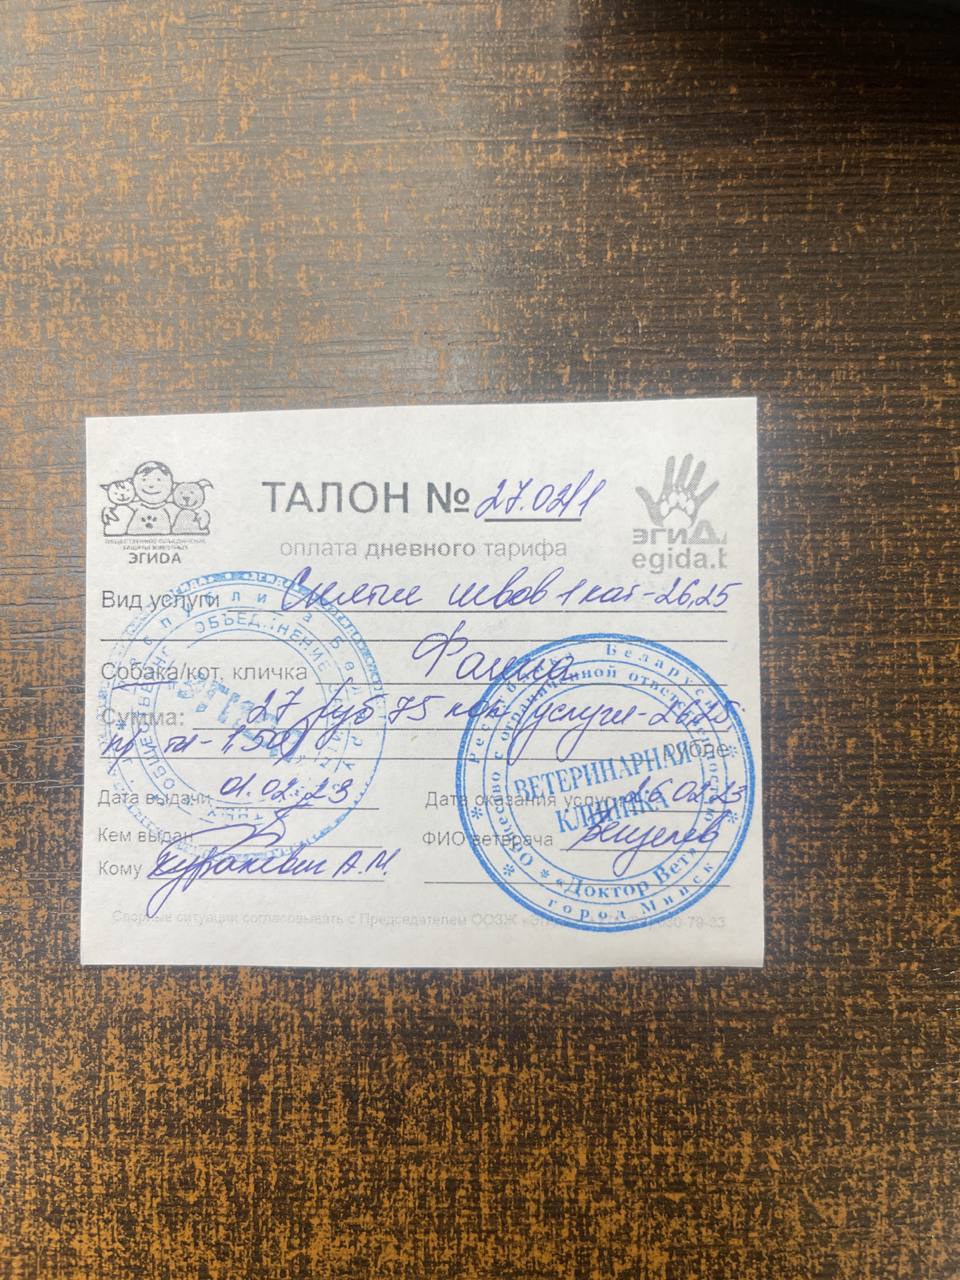 ОБЩЕСТВЕННОЕ ОБЪЕДИНЕНИЕ
ЗАЩИТЫ ЖИВОТНЫХ
ЭГИДА
ТАЛОН № 27.02/1
оплата дневного тарифа
ЭГИДА
egida.b
Вид услуги Снятие швов 1 кат-26,25
Собака/кот, кличка
Сумма: 27 руб 75 коп услуги-26,25
пр-ты-1,50
рубле
Дата выдачи 01.02.23
Дата оказания услуги 26.02.23
Кем выдан
ФИО ветврача
Кому А.М.
Спорные ситуации согласовывать с Председателем ООЗЖ «Эгида»
Республика Беларусь
Общество с ограниченной ответственностью
ВЕТЕРИНАРНАЯ
КЛИНИКА
«Доктор Вета»
город Минск